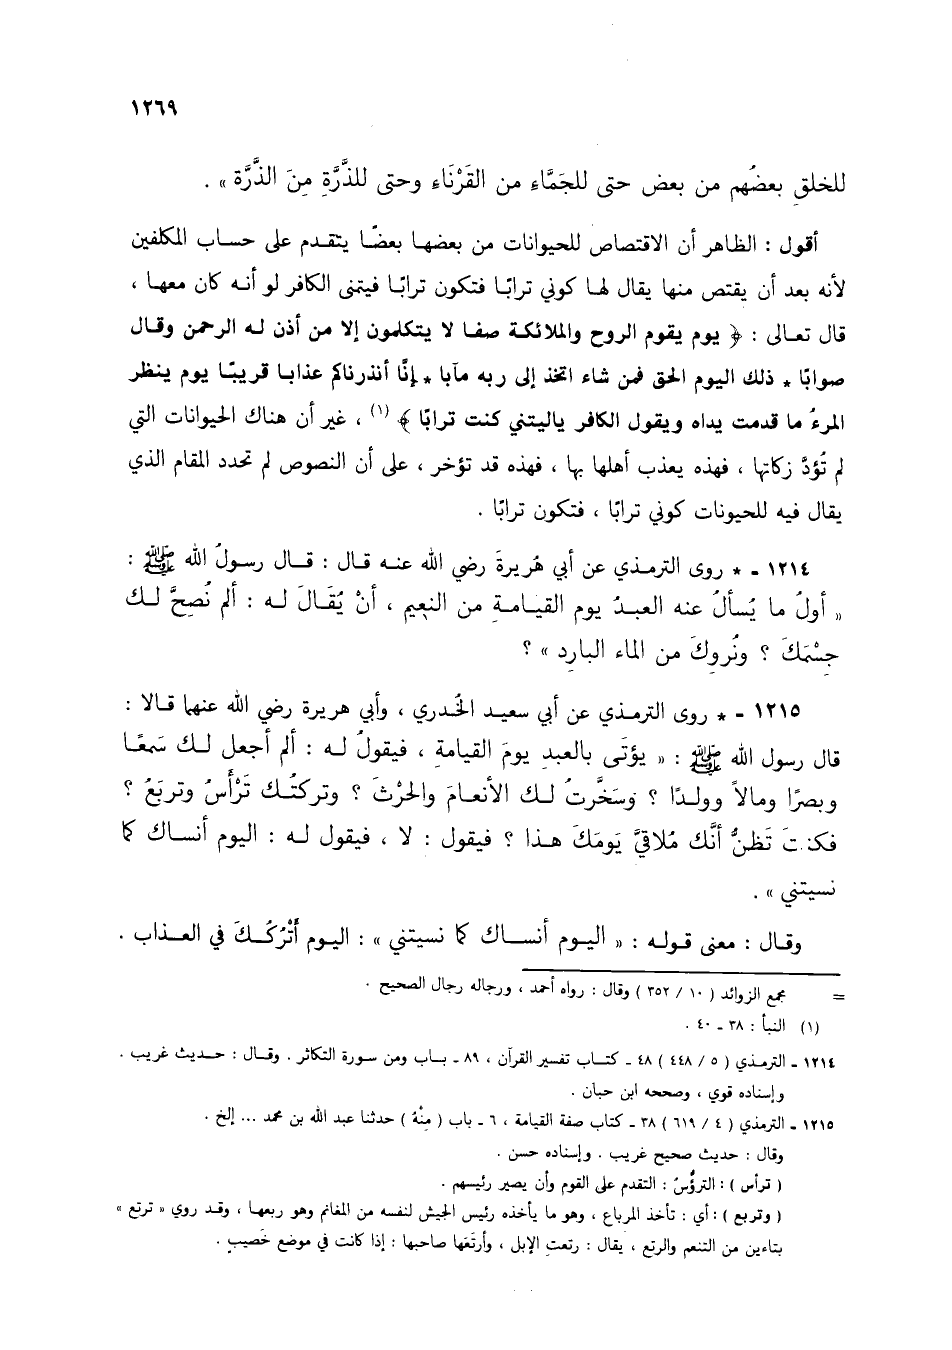 ١٢٦٩
للخلقِ بعضُهم من بعض حتى للجَمَّاء من القَرْنَاء وحتى للذَّرَّةِ مِنَ الذَّرَّة » .
أقول : الظاهر أن الاقتصاص للحيوانات من بعضها بعضًا يتقدم على حساب المكلفين
لأنه بعد أن يقتص منها يقال لها كوني ترابًا فتكون ترابًا فيتمنى الكافر لو أنه كان معها ،
قال تعالى : ﴿ يوم يقوم الروح والملائكة صفا لا يتكلمون إلا من أذن له الرحمن وقال
صوابًا * ذلك اليوم الحق فمن شاء اتخذ إلى ربه مآبا * إنَّا أنذرناكم عذابا قريبًا يوم ينظر
المرءُ ما قدمت يداه ويقول الكافر ياليتني كنت ترابًا ﴾ (١) ، غير أن هناك الحيوانات التي
لم تُؤدَّ زكاتها ، فهذه يعذب أهلها بها ، فهذه قد تؤخر ، على أن النصوص لم تحدد المقام الذي
يقال فيه للحيونات كوني ترابًا ، فتكون ترابًا .
١٢١٤ - * روى الترمذي عن أبي هُريرةَ رضي الله عنه قال : قال رسولُ الله ﷺ :
« أولُ ما يُسألُ عنه العبدُ يوم القيامةِ من النعيم ، أنْ يُقَالَ له : ألم نُصِحَّ لك
جِسْمَكَ ؟ ونُرويكَ من الماء البارِد » ؟
١٢١٥ - * روى الترمذي عن أبي سعيد الخُدري ، وأبي هريرة رضي الله عنهما قالا :
قال رسول الله ﷺ : « يؤتَى بالعبدِ يومَ القيامةِ ، فيقولُ له : ألم أجعل لك سَمعًا
وبصرًا ومالاً وولدًا ؟ وَسَخَّرتُ لك الأنعامَ والحَرْثَ ؟ وتركتُك تَرْأَسُ وتربَعُ ؟
فكنتَ تَظنُّ أنَّك مُلاقيَّ يَومَكَ هذا ؟ فيقول : لا ، فيقول له : اليوم أنساك كما
نسيتني » .
وقال : معنى قوله : « اليوم أنساك كما نسيتني » : اليوم أَتْرُكُكَ في العذاب .
= مجمع الزوائد ( ١٠ / ٣٥٢ ) وقال : رواه أحمد ، ورجاله رجال الصحيح .
(١) النبأ : ٣٨ - ٤٠ .
١٢١٤ - الترمذي ( ٥ / ٤٤٨ ) ٤٨ - كتاب تفسير القرآن ، ٨٩ - باب ومن سورة التكاثر . وقال : حديث غريب .
وإسناده قوي ، وصححه ابن حبان .
١٢١٥ - الترمذي ( ٤ / ٦١٩ ) ٣٨ - كتاب صفة القيامة ، ٦ - باب ( مِنْهُ ) حدثنا عبد الله بن محمد ... إلخ .
وقال : حديث صحيح غريب . وإسناده حسن .
( ترأس ) : الترؤُّسُ : التقدم على القوم وأن يصير رئيسهم .
( وتربع ) : أي : تأخذ المرباع ، وهو ما يأخذه رئيس الجيش لنفسه من المغانم وهو ربعها ، وقد روي « ترتع »
بتاءين من التنعم والرتع ، يقال : رتعتِ الإبل ، وأرتَعَها صاحبها : إذا كانت في موضع خَصيبٍ .